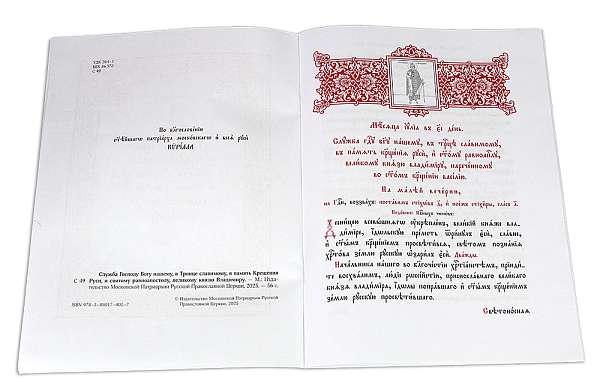 УДК 264-1
ББК 86.372
С 49
По благословенїю
ст҃ѣйшагѡ патрїарха московскагѡ и҆ всеѧ̀ рꙋсѝ
кѷрі́лла
Служба Господу Богу нашему, в Троице славимому, в память Крещения
С 49 Руси, и святому равноапостолу, великому князю Владимиру. — М.: Изда-
тельство Московской Патриархии Русской Православной Церкви, 2025. — 56 с.
ISBN 978-5-88017-402-7
© Издательство Московской Патриархии Русской
Православной Церкви, 2025
Мⷭ҇ѧца і҆ꙋ́лїа въ є҃і де́нь.
Слꙋ́жба гдⷭ҇ꙋ бг҃ꙋ на́шемꙋ, въ трⷪ҇цѣ сла́вимомꙋ,
въ па́мѧть крⷭ҇ще́нїѧ рꙋсѝ, и҆ ст҃о́мꙋ равноапⷭ҇лꙋ,
вели́комꙋ кнѧ́зю влади́мїрꙋ, нарече́нномꙋ
во ст҃о́мъ крⷭ҇ще́нїи васі́лїю.
На ма́лѣй вече́рни,
на Гдⷭ҇и, воззва́хъ: поста́вимъ стїхѡ́въ д҃, и҆ пое́мъ стїхи̑ры, гла́съ
а҆и́мїре, і҆́дѡльскꙋю пре́лесть ѿри́нꙋлъ є҆сѝ, сла́вне,
и҆ ст҃ы́мъ крⷭ҇ще́нїемъ просвѣти́всѧ, свѣ́томъ позна́нїѧ
хрⷭ҇то́ва зе́млю рꙋ́сскꙋю ѡ҆зари́лъ є҆сѝ. Два́жды.
Нача́льника на́шегѡ во благоче́стїи хрⷭ҇тїа́нстѣмъ, прїиди́-
те восхва́лимъ, лю́дїе россі́йстїи, приснославна́го вели́каго
кнѧ́зѧ влади́мїра, і҆́дѡлы попра́вшаго и҆ ст҃ы́мъ крⷭ҇ще́нїемъ
зе́млю рꙋ́сскꙋю просвѣти́вшаго.
Свѣтоно́снаѧ